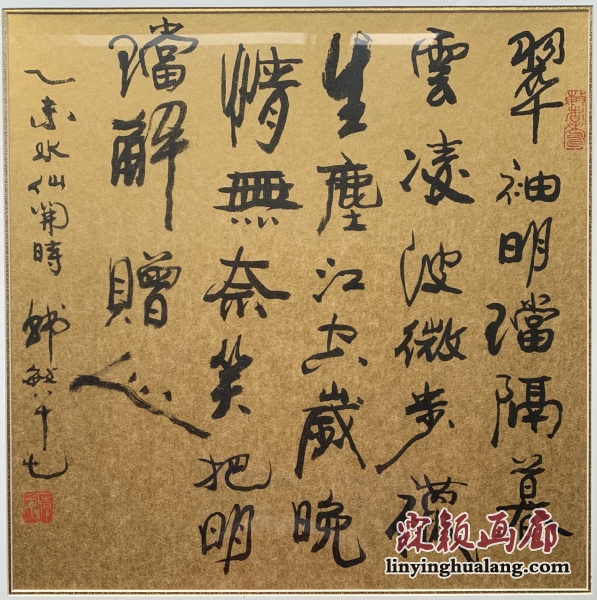 翠袖明璫隔暮
雲凌波微步襪
生塵江空歲晚
情無奈笑把明
璫解贈人
乙未水仙開時 韓敏八十七
画廊
linyinghualang.com